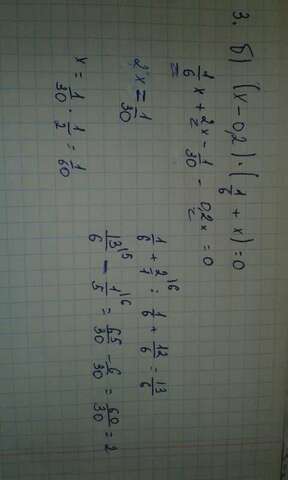 3. б) (x-0,2)·(1/6 + x)=0
1/6 x + 2x - 1/30 - 0,2x = 0
2x = 1/30
x = 1/30 · 1/2 = 1/60
1/6 + 2/1 \6 : 1/6 + 12/6 = 13/6
13/6 \5 - 1/5 \6 = 65/30 - 6/30 = 60/30 = 2